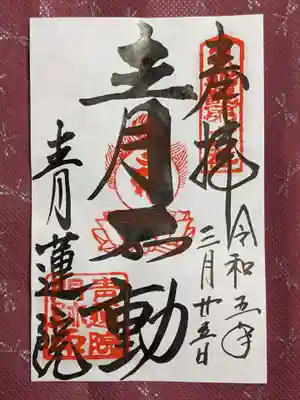 奉拝
令和五年
三月廿五日
青不動
青蓮院